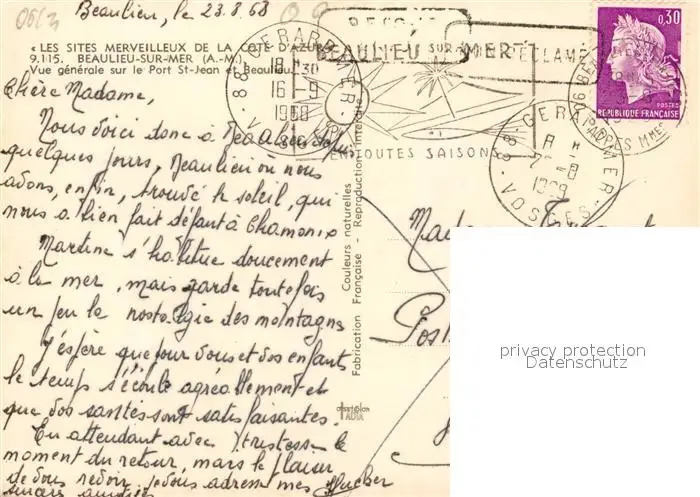 06/2
Beaulieu, le 23.8.68
« LES SITES MERVEILLEUX DE LA COTE D'AZUR »
9.115. BEAULIEU-SUR-MER (A.-M.)
Vue générale sur le Port St-Jean et Beaulieu
Chère Madame,
Nous voici donc à Beaulieu depuis
quelques jours, Beaulieu où nous
avons, enfin, trouvé le soleil, qui
nous a bien fait défaut à Chamonix
Martine s'habitue doucement
à la mer, mais garde toutefois
un peu la nostalgie des montagnes
J'espère que pour vous et vos enfants
le temps s'écoule agréablement et
que vos santés sont satisfaisantes.
En attendant avec tristesse le
moment du retour, mais le plaisir
de vous revoir, je vous adresse mes
BEAULIEU SUR MER
EN TOUTES SAISONS
88 GERARDMER
18 H 30
16-9
1968
88 GERARDMER
VOSGES
0,30
POSTES
REPUBLIQUE FRANÇAISE
Couleurs naturelles
Fabrication Française - Reproduction interdite
Mada
Post
privacy protection
Datenschutz